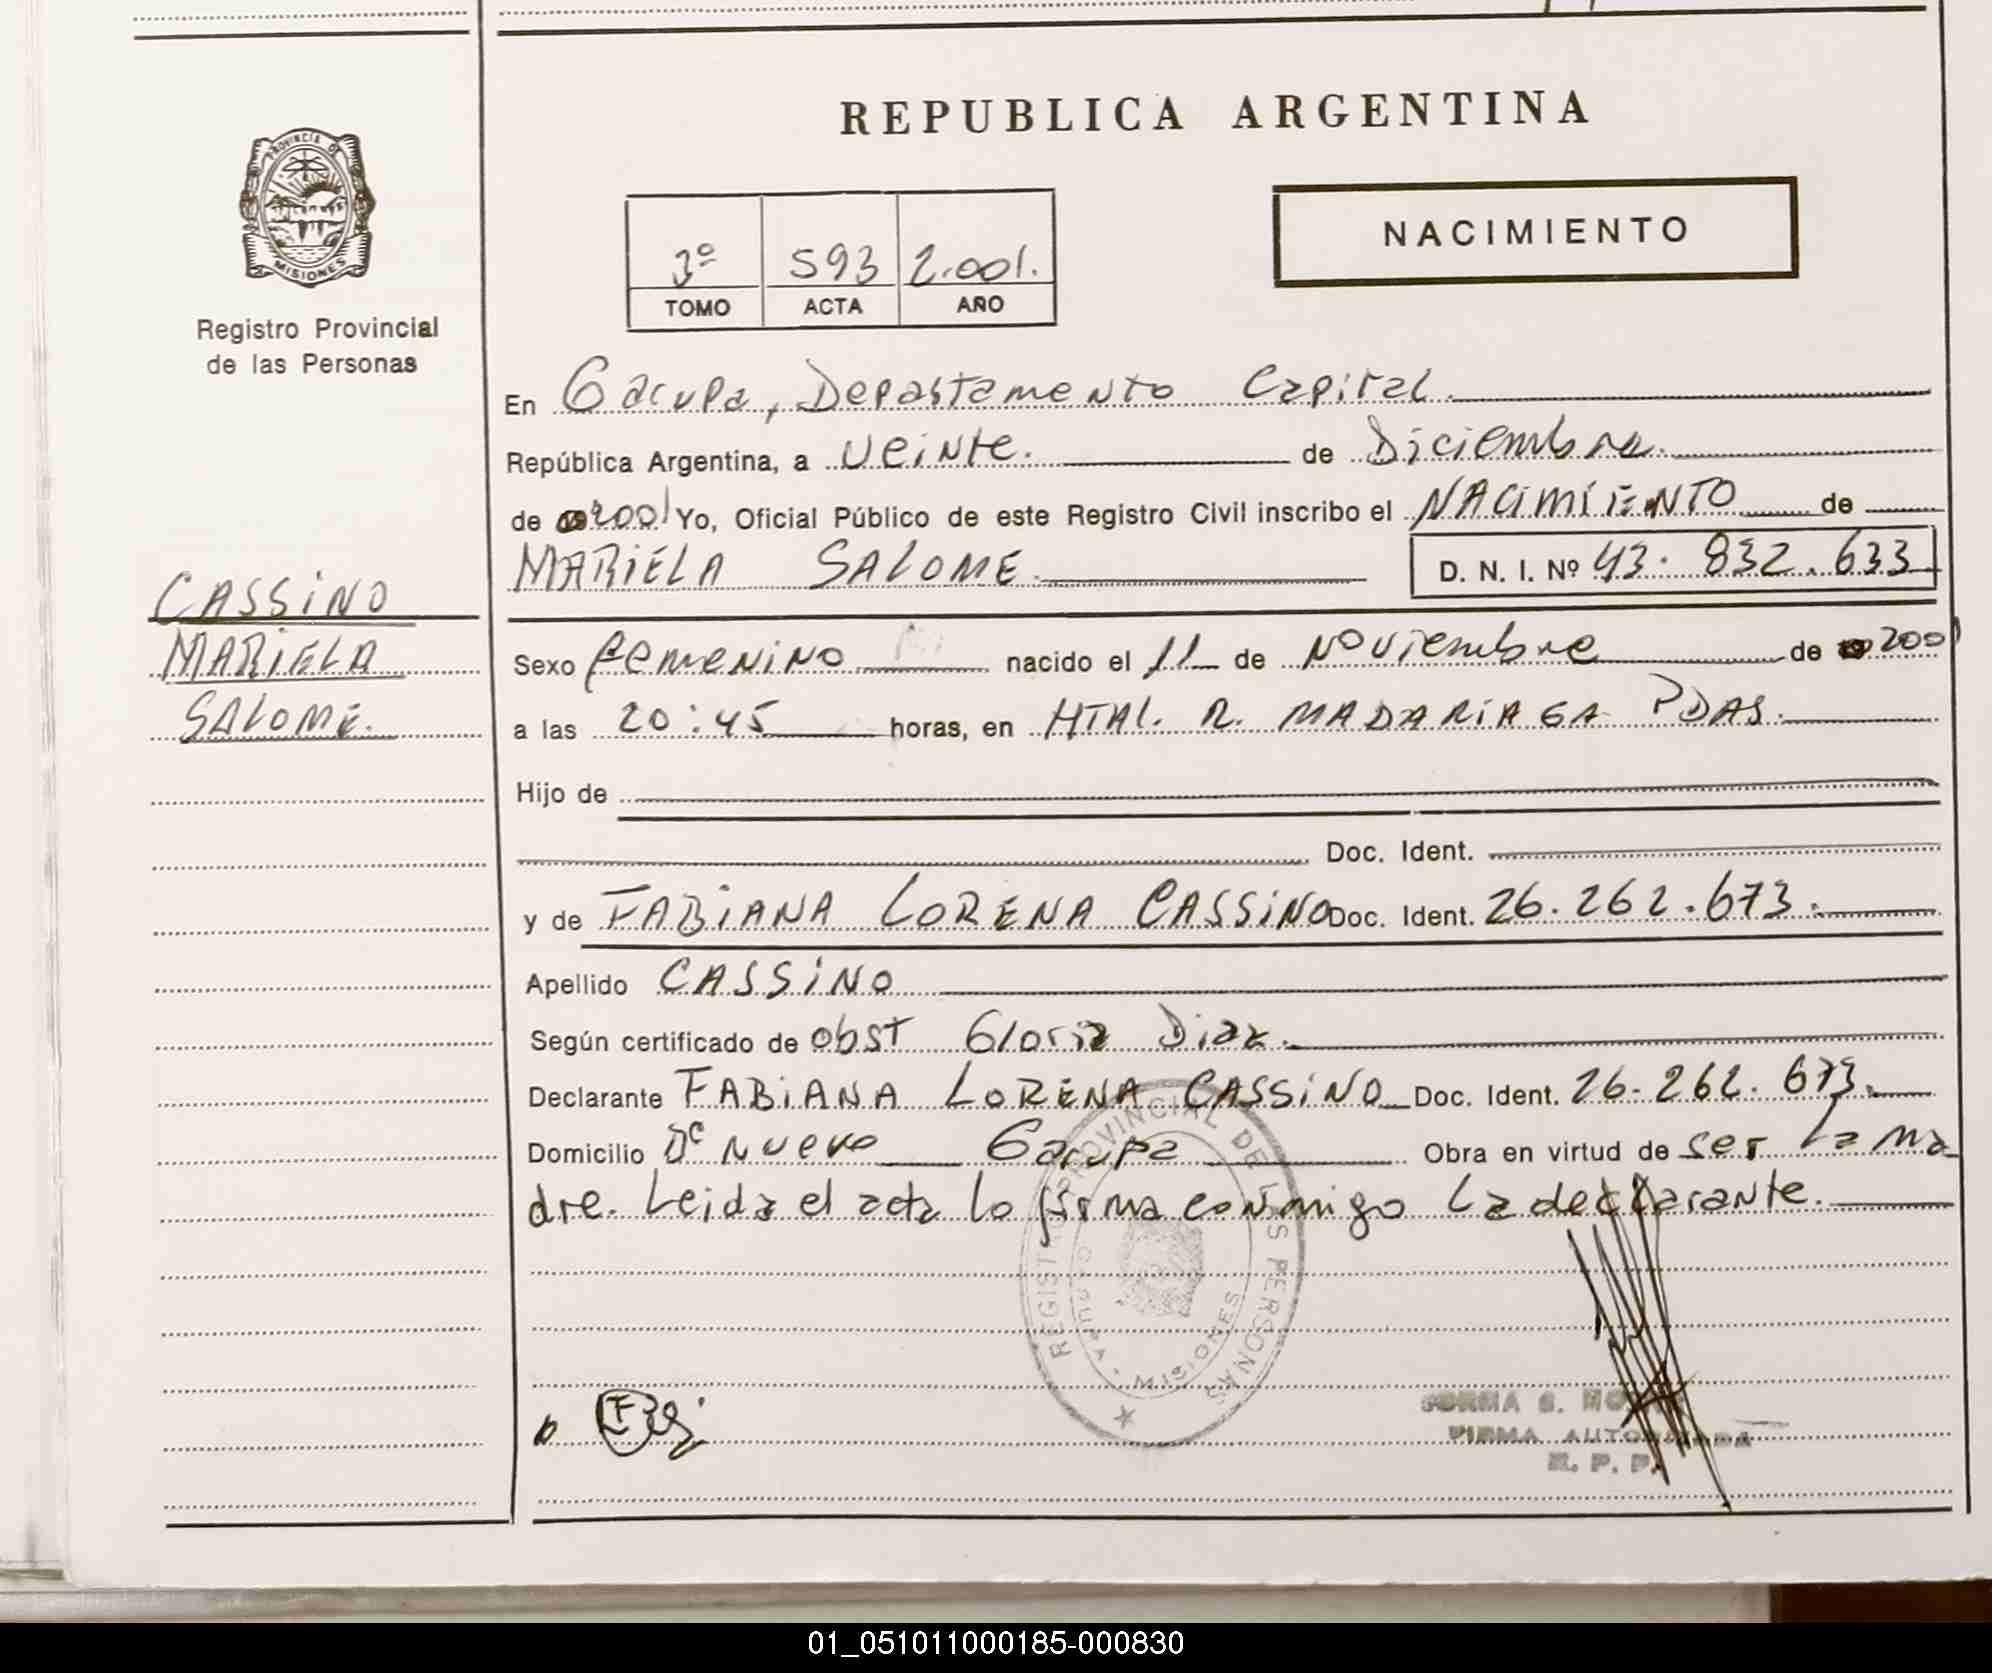 PROVINCIA DE
MISIONES
Registro Provincial
de las Personas
CASSINO
MARIELA
SALOME.
REPUBLICA ARGENTINA
NACIMIENTO
3º 593 2.001.
TOMO ACTA AÑO
En Garupa, Departamento Capital.
República Argentina, a veinte. de Diciembre.
de 2001 Yo, Oficial Público de este Registro Civil inscribo el NACIMIENTO de
MARIELA SALOME. D. N. I. Nº 43.832.633
Sexo femenino nacido el 11 de Noviembre de 2001
a las 20:45 horas, en HTAL. R. MADARIAGA PDAS.
Hijo de
Doc. Ident.
y de FABIANA LORENA CASSINO Doc. Ident. 26.262.673.
Apellido CASSINO
Según certificado de obst Gloria Diaz.
Declarante FABIANA LORENA CASSINO Doc. Ident. 26.262.673.
Domicilio Bº Nuevo Garupa Obra en virtud de ser la ma
dre. Leida el acta lo firma conmigo la declarante.
REGISTRO PROVINCIAL DE LAS PERSONAS
MISIONES
FIRMA AUTORIZADA
R. P. P.
01_051011000185-000830